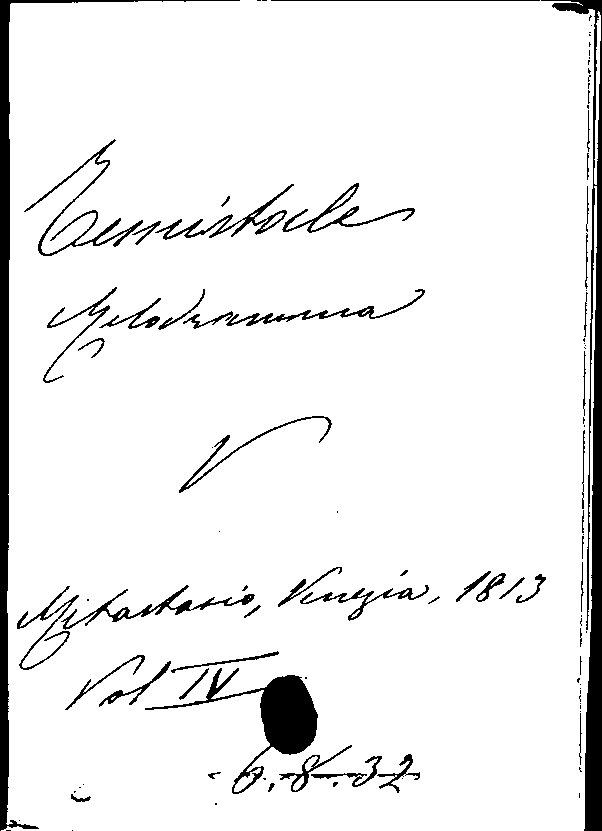 Temistocle
Melodramma
V
Metastasio, Venezia, 1813
Vol IV
-6.-8.-32-